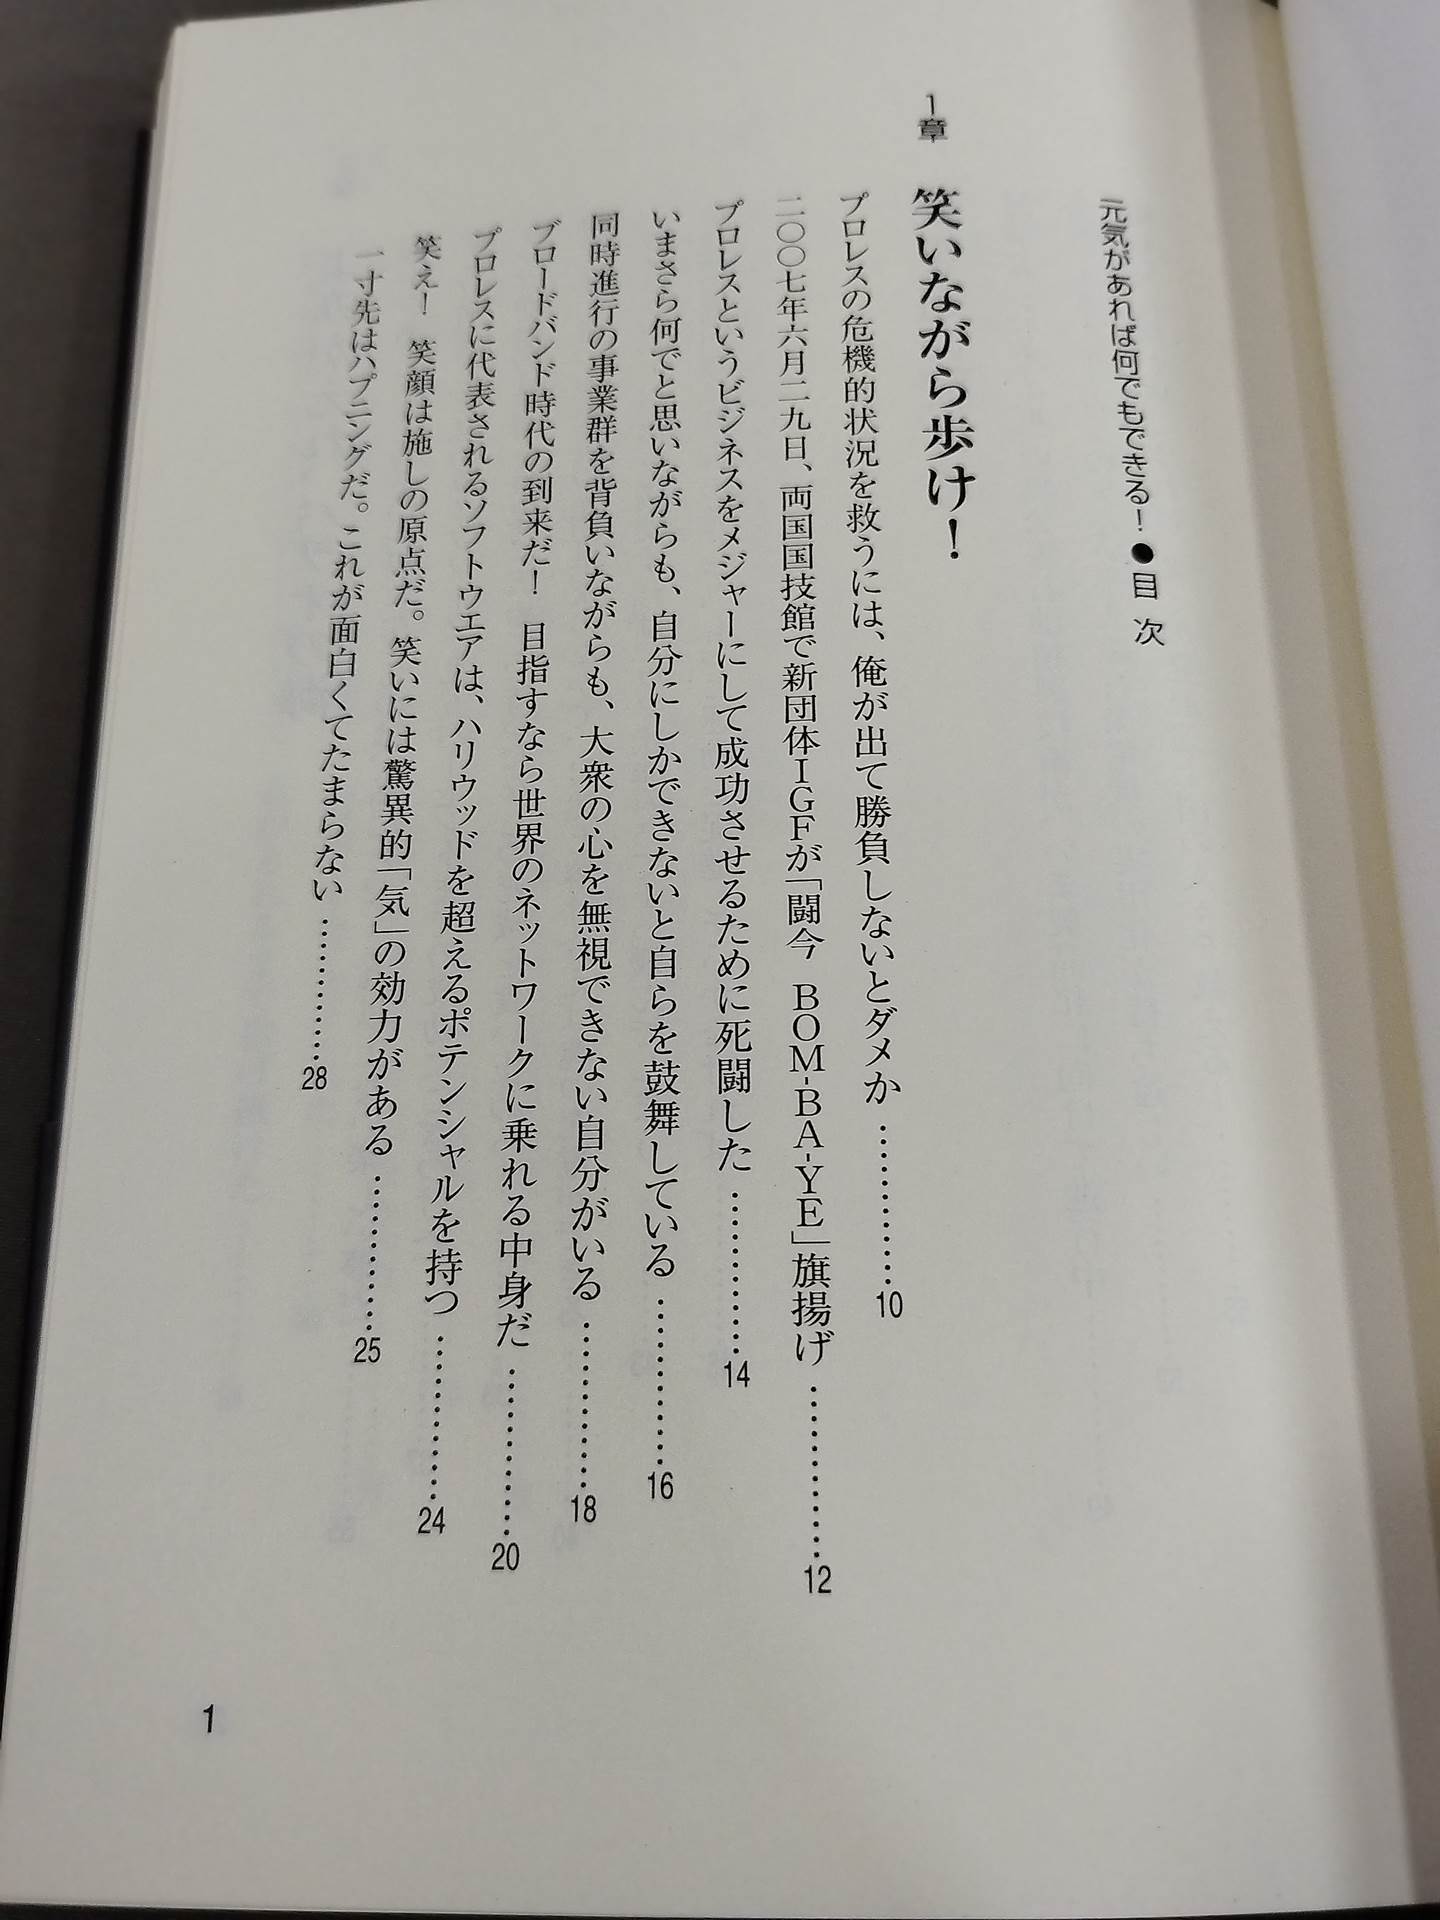 元気があれば何でもできる!●目次
1章 笑いながら歩け!
プロレスの危機的状況を救うには、俺が出て勝負しないとダメか …………… 10
二〇〇七年六月二九日、両国国技館で新団体IGFが「闘今 BOM-BA-YE」旗揚げ …………… 12
プロレスというビジネスをメジャーにして成功させるために死闘した …………… 14
いまさら何でと思いながらも、自分にしかできないと自らを鼓舞している …………… 16
同時進行の事業群を背負いながらも、大衆の心を無視できない自分がいる …………… 18
ブロードバンド時代の到来だ! 目指すなら世界のネットワークに乗れる中身だ …………… 20
プロレスに代表されるソフトウエアは、ハリウッドを超えるポテンシャルを持つ …………… 24
笑え! 笑顔は施しの原点だ。笑いには驚異的「気」の効力がある …………… 25
一寸先はハプニングだ。これが面白くてたまらない …………… 28
1